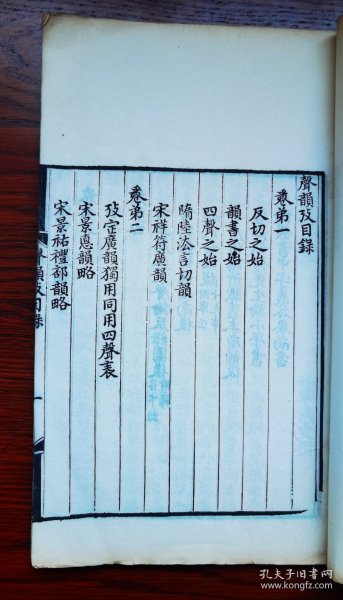 聲韻攷目錄
卷弟一
反切之始
韻書之始
四聲之始
隋陸法言切韻
宋祥符廣韻
卷弟二
攷定廣韻獨用同用四聲表
宋景悳韻略
宋景祐禮部韻略
聲韻攷目錄
一
孔夫子旧书网